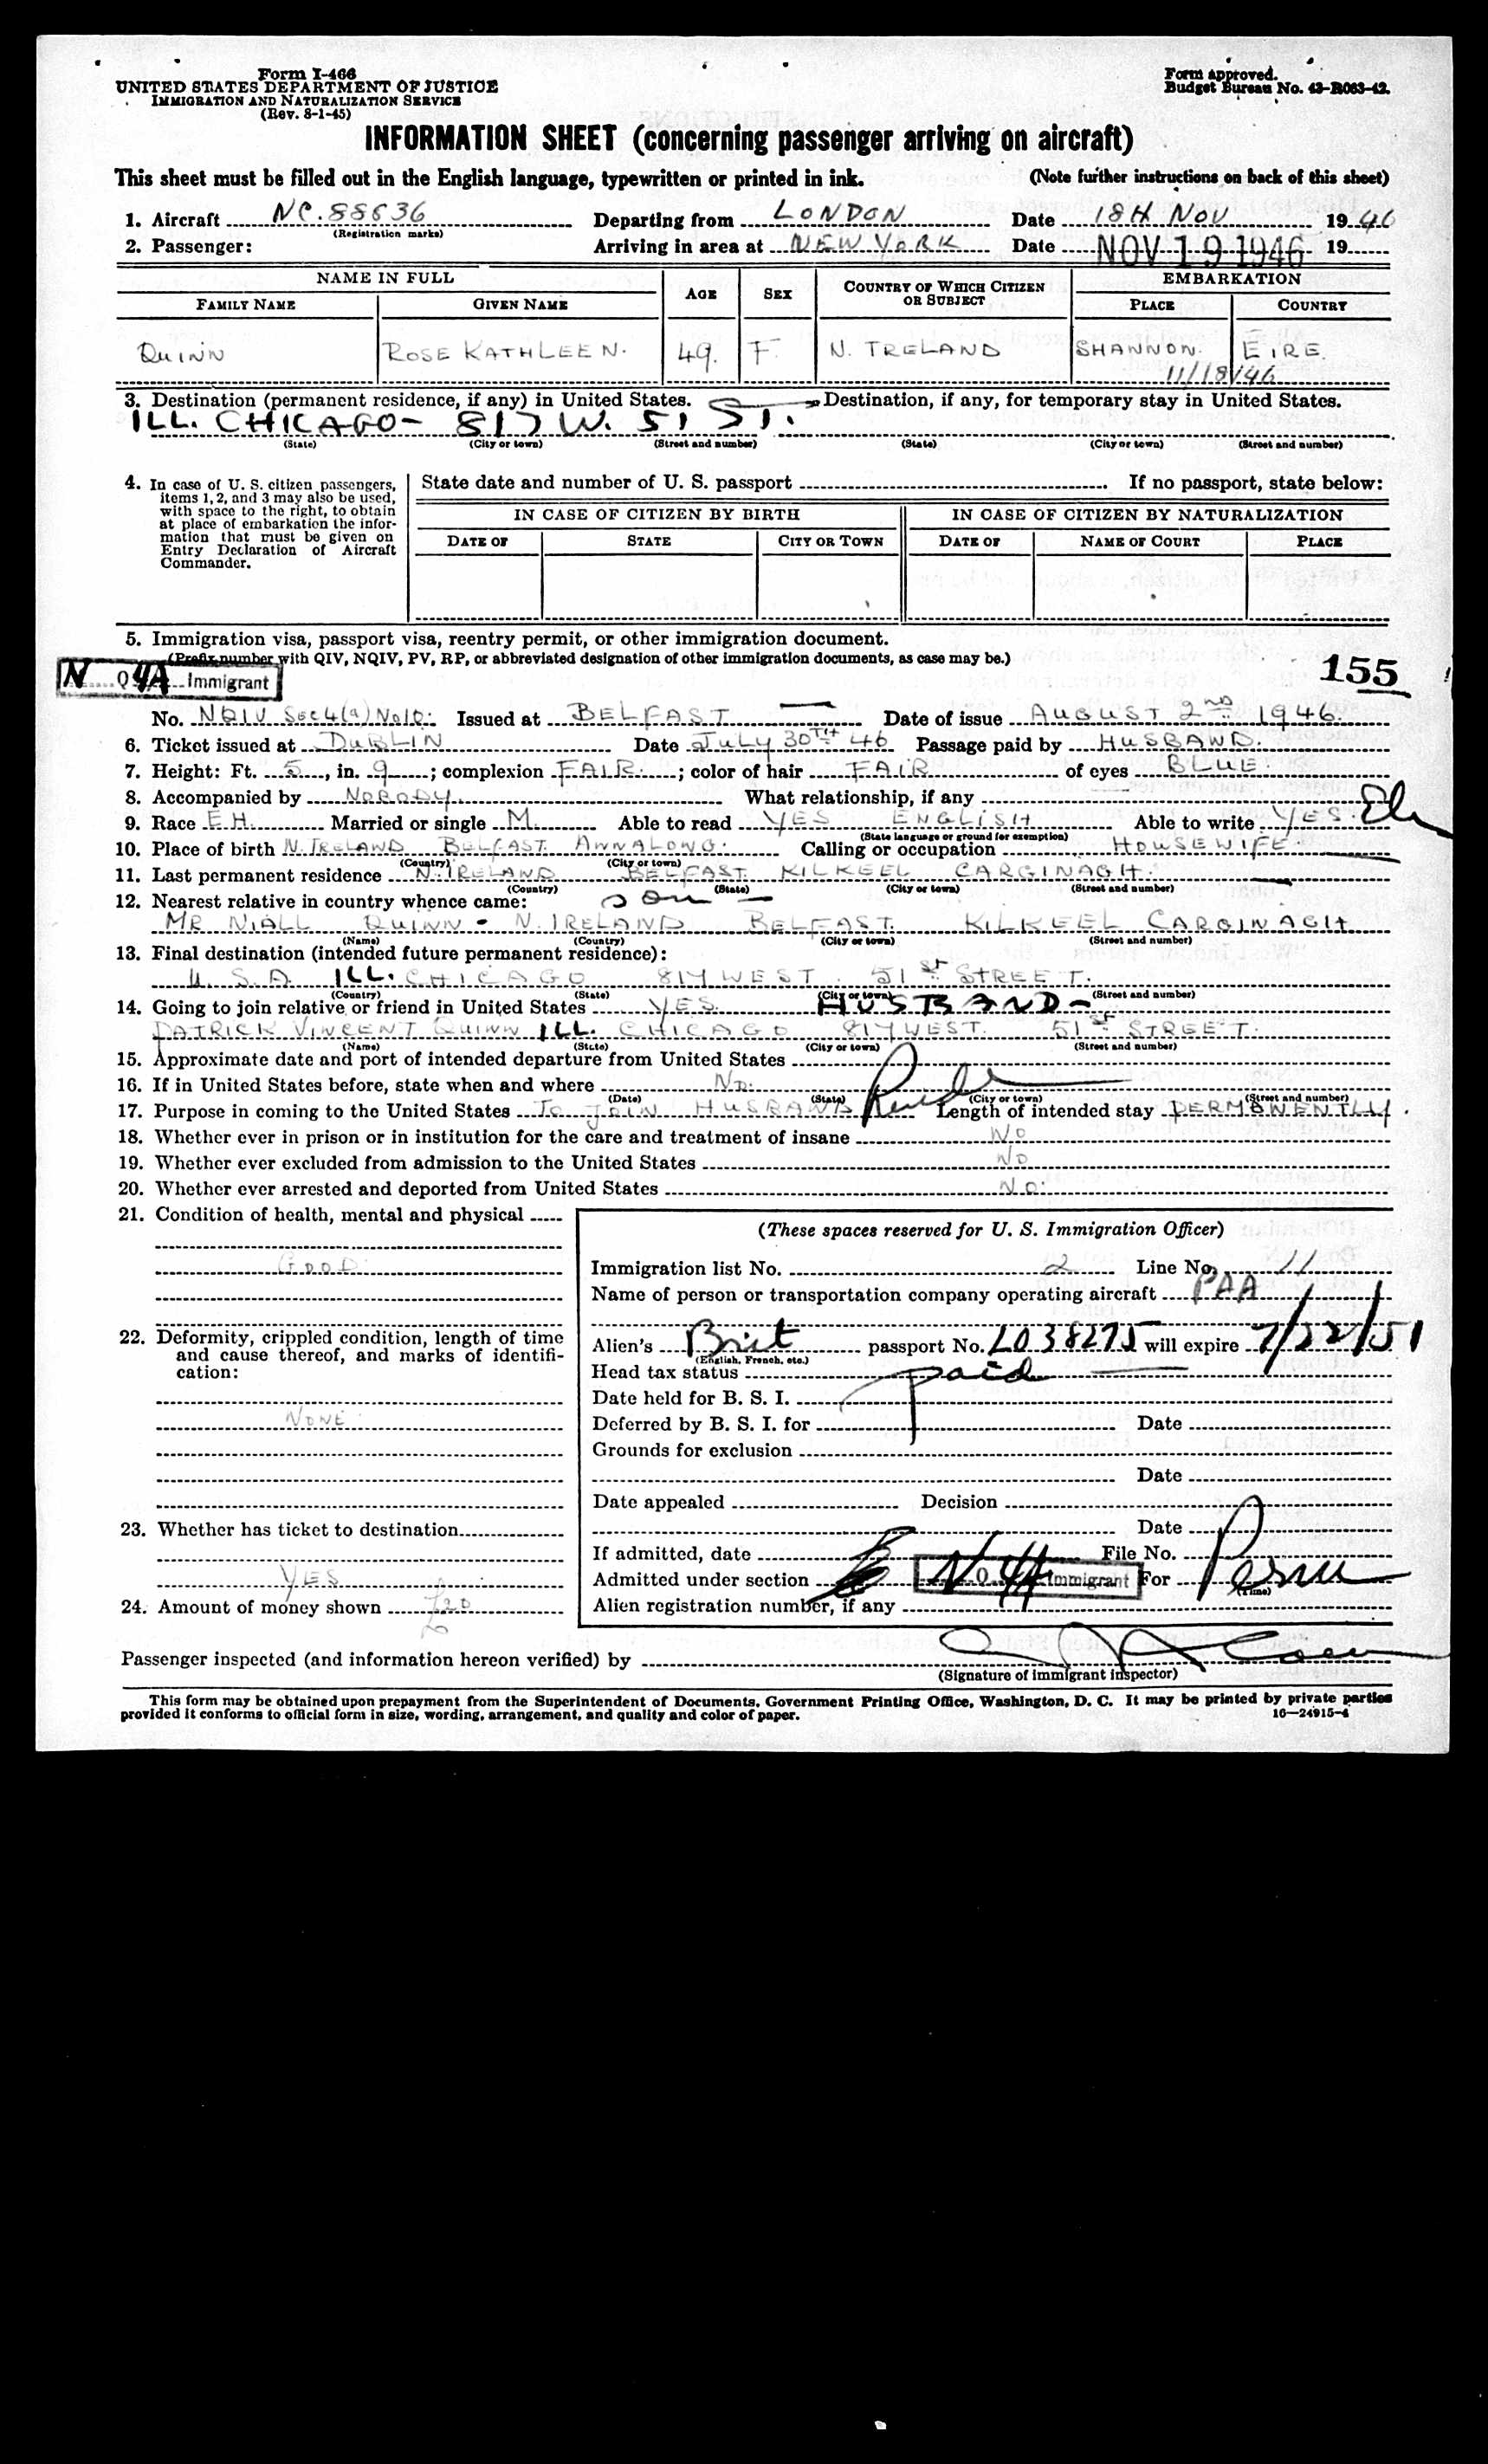 Form I-466
UNITED STATES DEPARTMENT OF JUSTICE
IMMIGRATION AND NATURALIZATION SERVICE
(Rev. 8-1-45)
Form approved.
Budget Bureau No. 43-R063-42.
INFORMATION SHEET (concerning passenger arriving on aircraft)
This sheet must be filled out in the English language, typewritten or printed in ink. (Note further instructions on back of this sheet)
1. Aircraft NC.88836 Departing from LONDON Date 18H NOV 1946
(Registration marks)
2. Passenger: Arriving in area at NEW YORK Date NOV 19 1946 19
NAME IN FULL AGE SEX COUNTRY OF WHICH CITIZEN OR SUBJECT EMBARKATION
FAMILY NAME GIVEN NAME PLACE COUNTRY
QUINN ROSE KATHLEEN. 49. F. N. IRELAND SHANNON. EIRE.
11/18/46
3. Destination (permanent residence, if any) in United States. Destination, if any, for temporary stay in United States.
ILL. CHICAGO - 817 W. 51 ST.
(State) (City or town) (Street and number) (State) (City or town) (Street and number)
4. In case of U. S. citizen passengers, items 1, 2, and 3 may also be used, with space to the right, to obtain at place of embarkation the information that must be given on Entry Declaration of Aircraft Commander.
State date and number of U. S. passport If no passport, state below:
IN CASE OF CITIZEN BY BIRTH IN CASE OF CITIZEN BY NATURALIZATION
DATE OF STATE CITY OR TOWN DATE OF NAME OF COURT PLACE
5. Immigration visa, passport visa, reentry permit, or other immigration document.
(Prefix number with QIV, NQIV, PV, RP, or abbreviated designation of other immigration documents, as case may be.)
155
N Q 4A Immigrant
No. NQIV Sec 4(a) No10. Issued at BELFAST Date of issue AUGUST 2nd 1946.
6. Ticket issued at DUBLIN Date July 30TH 46 Passage paid by HUSBAND.
7. Height: Ft. 5, in. 9; complexion FAIR.; color of hair FAIR of eyes BLUE.
8. Accompanied by NOBODY. What relationship, if any
9. Race E.H. Married or single M. Able to read YES ENGLISH Able to write YES.
(State language or ground for exemption)
10. Place of birth N. IRELAND BELFAST. ANNALONG. Calling or occupation HOUSEWIFE.
(Country) (City or town)
11. Last permanent residence N. IRELAND BELFAST. KILKEEL CARGINAGH.
(Country) (State) (City or town) (Street and number)
12. Nearest relative in country whence came: son
MR NIALL QUINN - N. IRELAND BELFAST. KILKEEL CARGINAGH
(Name) (Country) (City or town) (Street and number)
13. Final destination (intended future permanent residence):
U.S.A. ILL. CHICAGO 817 WEST. 51st STREET.
(Country) (State) (City or town) (Street and number)
14. Going to join relative or friend in United States YES. HUSBAND -
PATRICK VINCENT QUINN ILL. CHICAGO 817 WEST. 51st STREET.
(Name) (State) (City or town) (Street and number)
15. Approximate date and port of intended departure from United States
16. If in United States before, state when and where No.
(Date) (State) (City or town) (Street and number)
17. Purpose in coming to the United States To JOIN HUSBAND Length of intended stay PERMANENTLY.
18. Whether ever in prison or in institution for the care and treatment of insane No
19. Whether ever excluded from admission to the United States No
20. Whether ever arrested and deported from United States No.
21. Condition of health, mental and physical
GOOD.
22. Deformity, crippled condition, length of time and cause thereof, and marks of identification:
NONE
23. Whether has ticket to destination
YES
24. Amount of money shown £20
(These spaces reserved for U. S. Immigration Officer)
Immigration list No. 2 Line No. 11
Name of person or transportation company operating aircraft PAA
Alien's Brit passport No. L038275 will expire 7/22/51
(English, French, etc.)
Head tax status paid
Date held for B. S. I.
Deferred by B. S. I. for Date
Grounds for exclusion
Date
Date appealed Decision
Date
If admitted, date File No.
Admitted under section N Q 4A Immigrant For Perm
(Time)
Alien registration number, if any
Passenger inspected (and information hereon verified) by
(Signature of immigrant inspector)
This form may be obtained upon prepayment from the Superintendent of Documents, Government Printing Office, Washington, D. C. It may be printed by private parties
provided it conforms to official form in size, wording, arrangement, and quality and color of paper. 16—24915-4